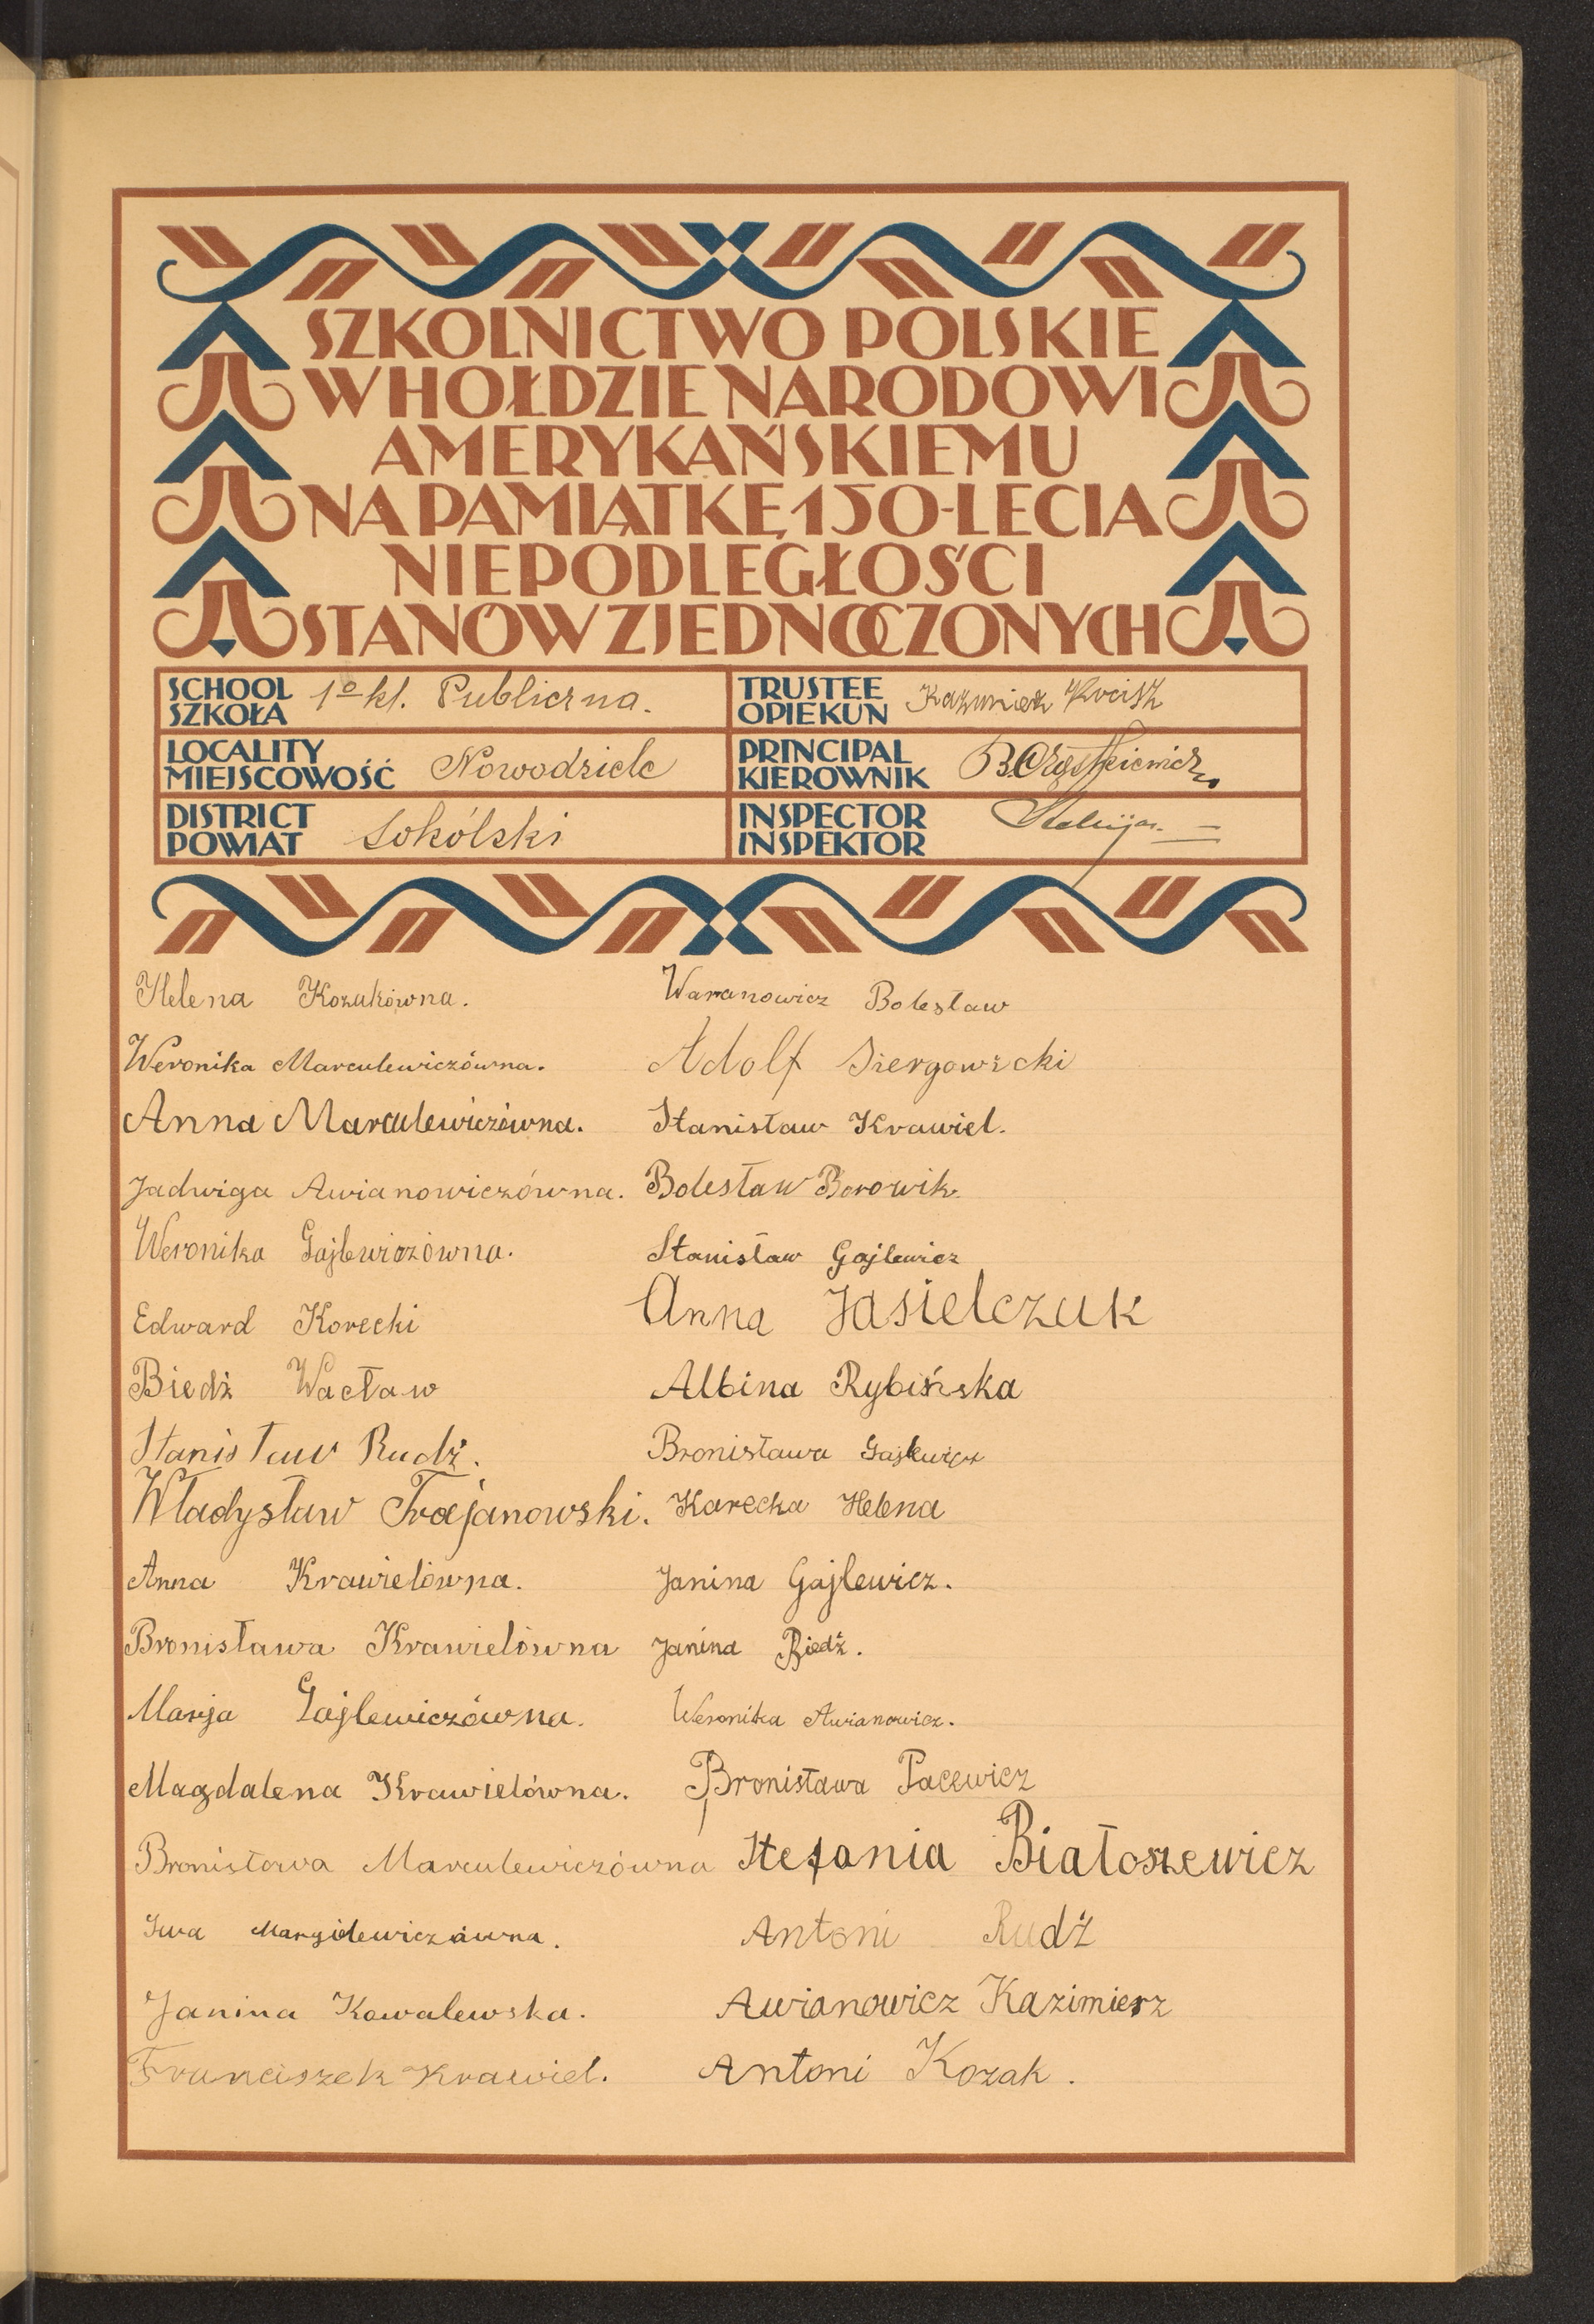 SZKOLNICTWO POLSKIE
W HOŁDZIE NARODOWI
AMERYKAŃSKIEMU
NA PAMIĄTKĘ 150-LECIA
NIEPODLEGŁOŚCI
STANÓW ZJEDNOCZONYCH
SCHOOL
SZKOŁA
1º kl. Publiczna.
TRUSTEE
OPIEKUN
Kazimierz
LOCALITY
MIEJSCOWOŚĆ
Nowodziele
PRINCIPAL
KIEROWNIK
DISTRICT
POWIAT
Sokólski
INSPECTOR
INSPEKTOR
Helena Kozakówna.
Weronika Marculewiczówna.
Anna Marculewiczówna.
Jadwiga Awianowiczówna.
Weronika Gajlewiczówna.
Edward Korecki
Biedź Wacław
Stanisław Rudź.
Władysław Trajanowski.
Anna Krawielówna.
Bronisława Krawielówna
Marja Gajlewiczówna.
Magdalena Krawielówna.
Bronisława Marculewiczówna
Janina Kowalewska.
Franciszek Krawiel.
Waranowicz Bolesław
Adolf
Stanisław Krawiel.
Bolesław Borowik.
Stanisław Gajlewicz
Anna Jasielczuk
Albina Rybińska
Bronisława
Karecka Helena
Janina Gajlewicz.
Janina Biedź.
Weronika Awianowicz.
Bronisława Pacewicz
Stefania Białoszewicz
Antoni Rudź
Awianowicz Kazimierz
Antoni Kozak.